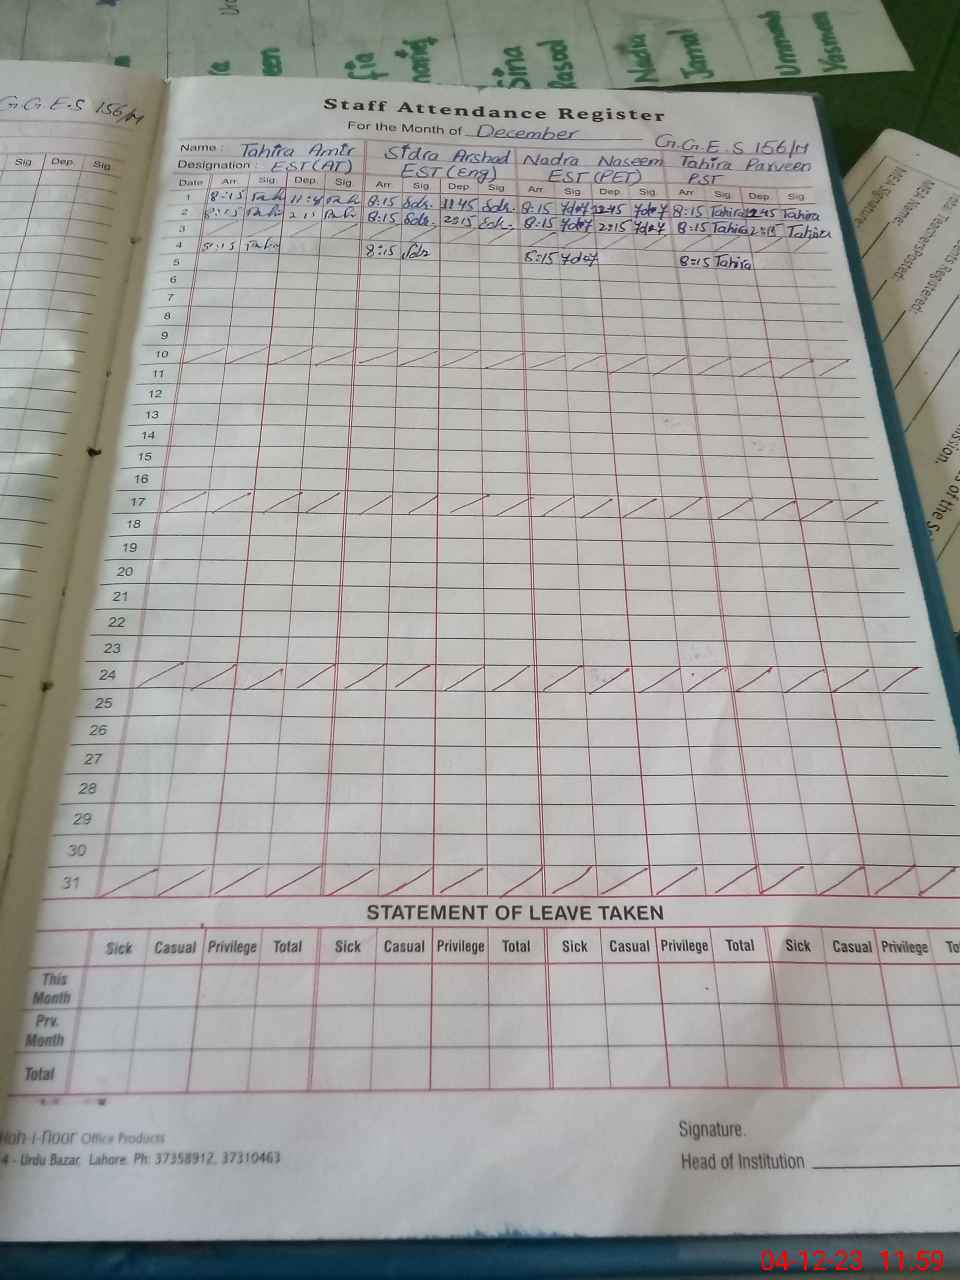 G.G.E.S 156/M
Sig. Dep. Sig.
Sina Rasool
Nadia Jamal
Ummah Yasmeen
Staff Attendance Register
For the Month of December
G.G.E.S 156/M
Name : Tahira Amir Sidra Arshad Nadra Naseem Tahira Parveen
Designation : EST(AT) EST(Eng) EST(PET) PST
Date Arr. Sig. Dep. Sig. Arr. Sig. Dep. Sig. Arr Sig. Dep. Sig. Arr Sig. Dep. Sig.
1 8:15 8:15 11:45 8:15 12:45 8:15 Tahira 12:45 Tahira
2 8:15 8:15 2:15 8:15 2:15 8:15 Tahira 2:15 Tahira
3
4 8:15 8:15 8:15 8:15 Tahira
5
6
7
8
9
10
11
12
13
14
15
16
17
18
19
20
21
22
23
24
25
26
27
28
29
30
31
STATEMENT OF LEAVE TAKEN
Sick Casual Privilege Total Sick Casual Privilege Total Sick Casual Privilege Total Sick Casual Privilege
This Month
Prv. Month
Total
Koh-i-noor Office Products
4 - Urdu Bazar, Lahore. Ph: 37358912, 37310463
Signature.
Head of Institution
MEA Name:
MEA Signature
04-12-23 11:59